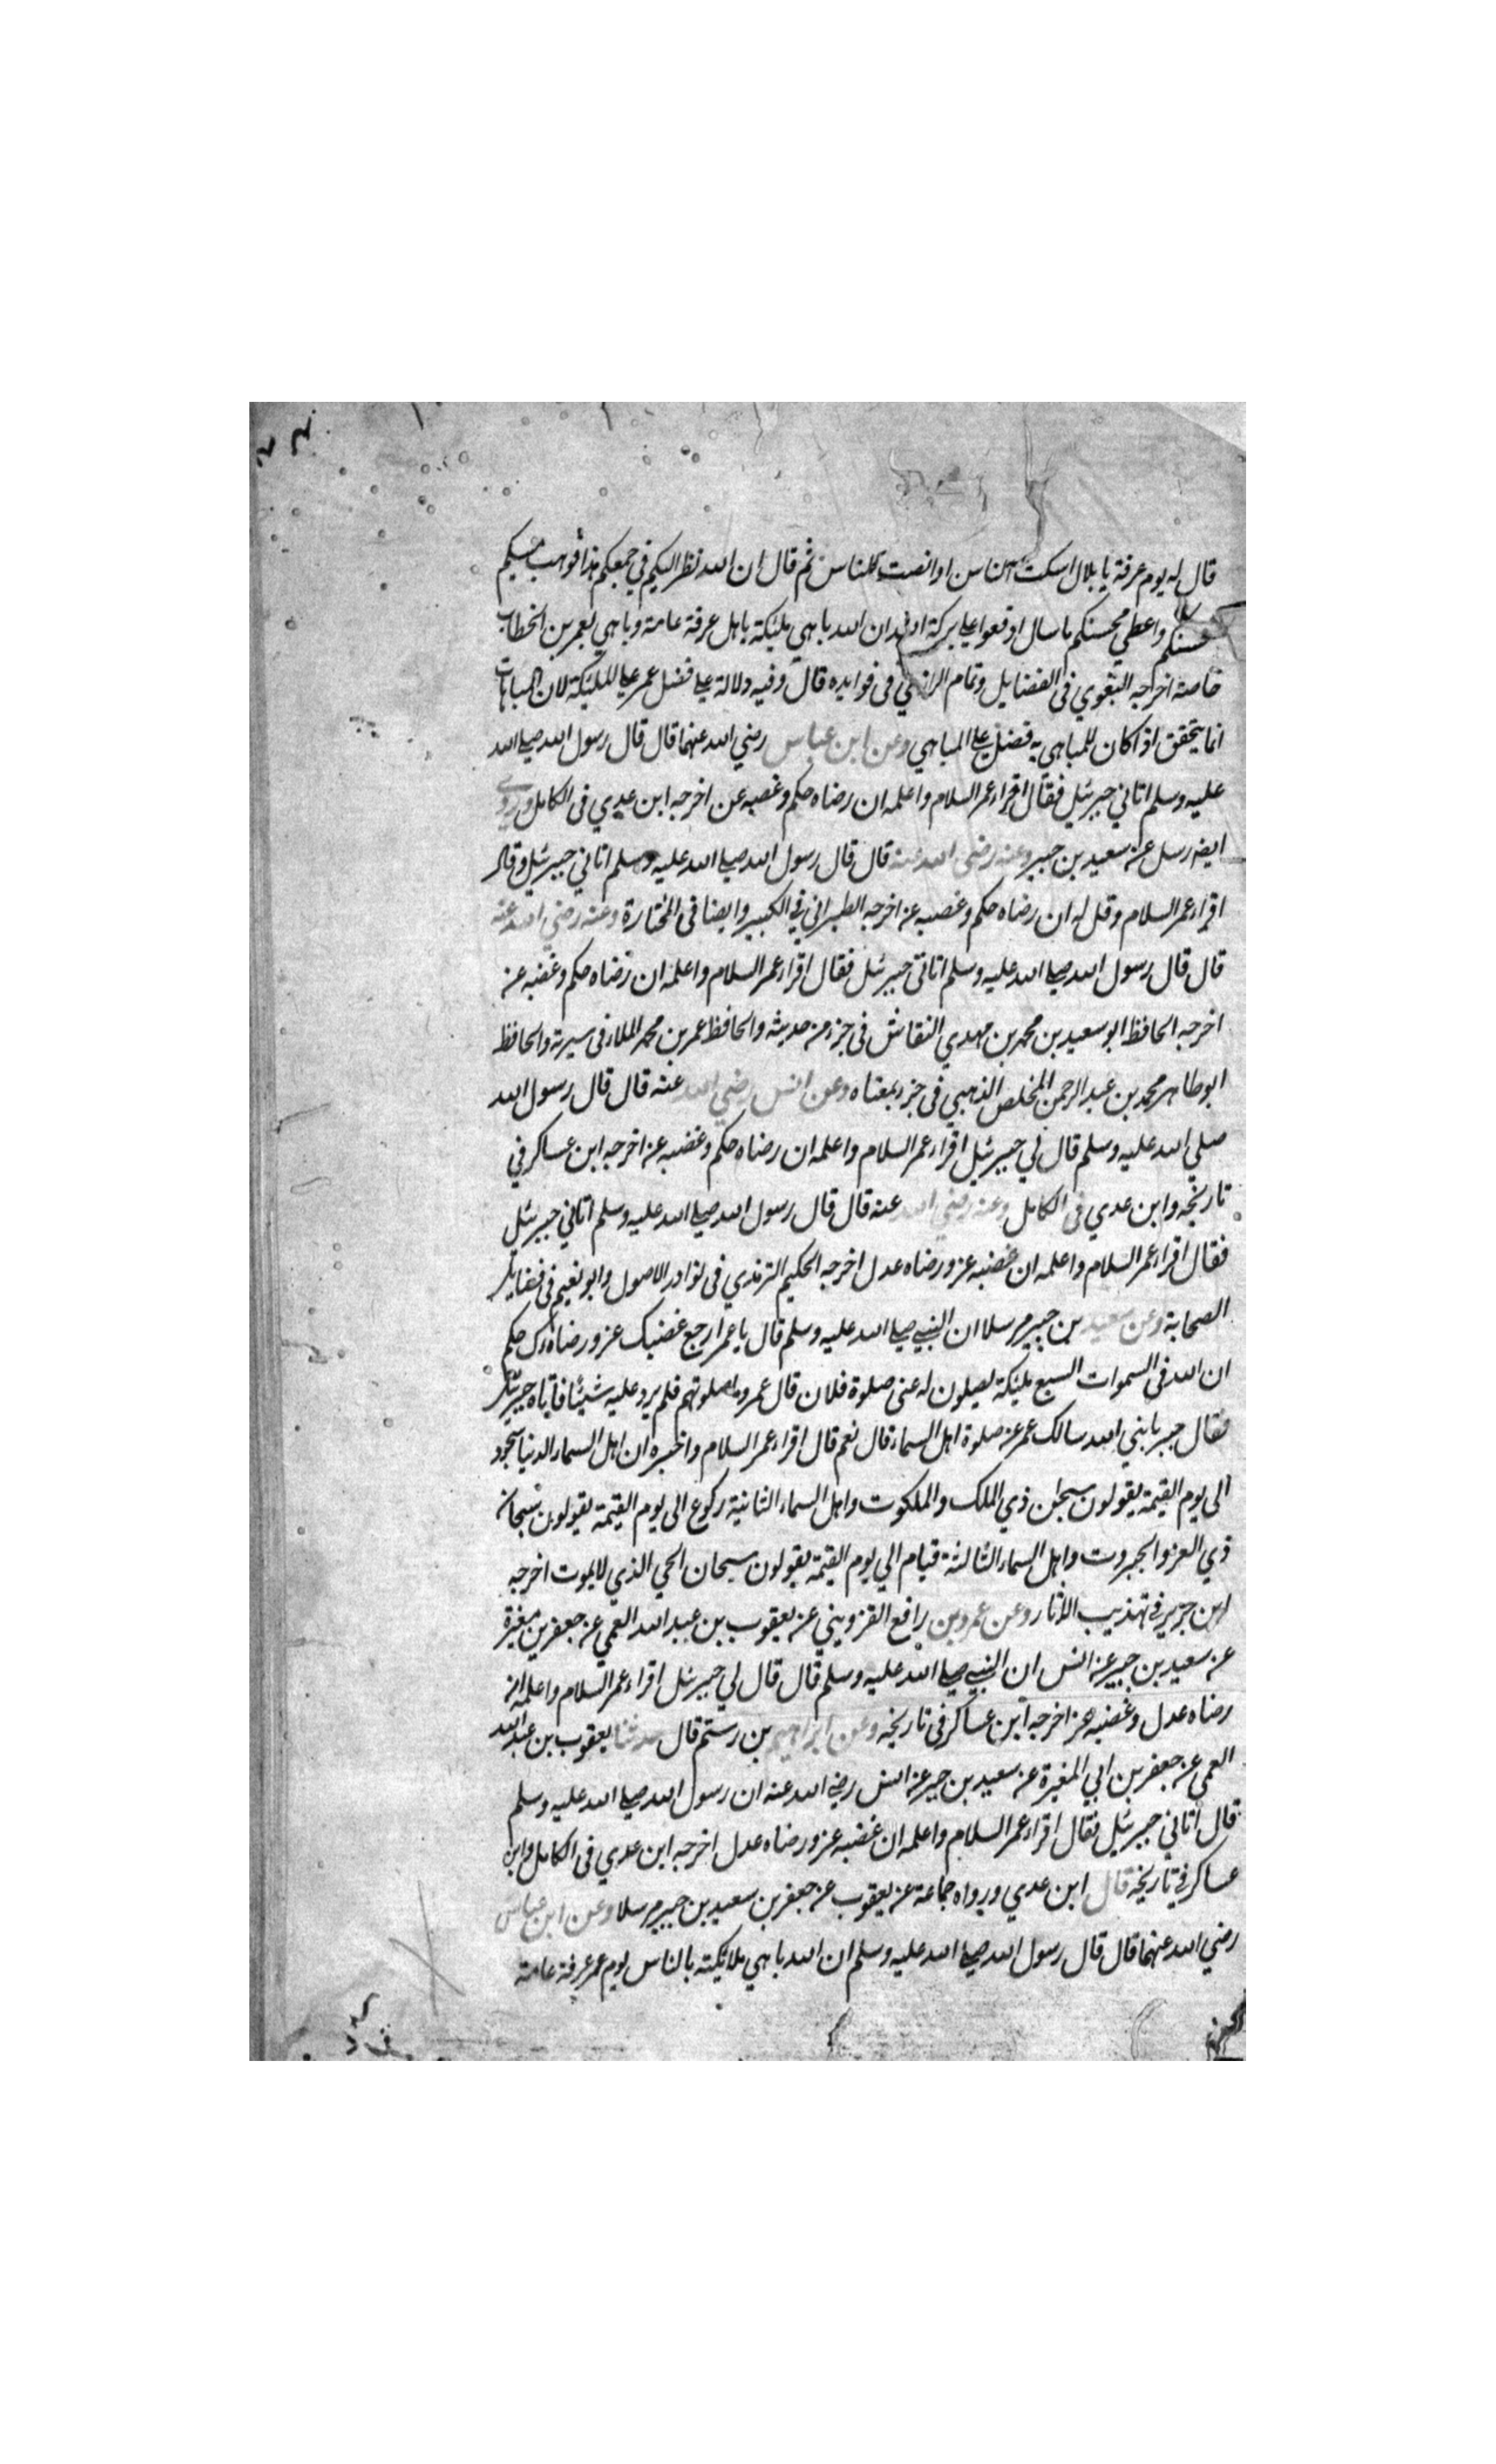 قال له يوم عرفة يا بلال اسكت الناس او انصت للناس ثم قال ان الله نظر اليكم في جمعكم هذا فوهب مسيكم
لمحسنكم واعطي محسنكم ما سال اوقعوا علي بركة الله ان الله باهي مليكة باهل عرفة عامة وباهي بعمر بن الخطاب
خاصة اخرجه البغوي في الفضايل وتمام الرازي في فوايده قال وفيه دلالة علي فضل عمر علي المليكة لان المباهات
انما يتحقق اذا كان للمباهي به فضل علي المباهي وعن ابن عباس رضي الله عنهما قال قال رسول الله صلي الله
عليه وسلم اتاني جبرئيل فقال اقراء عمر السلام واعلمه ان رضاه حكم وغضبه عز اخرجه ابن عدي في الكامل وروي
ايضه رسل عن سعيد بن جبير وعنه رضي الله عنه قال قال رسول الله صلي الله عليه وسلم اتاني جبرئيل وقال
اقراء عمر السلام وقل له ان رضاه حكم وغضبه عز اخرجه الطبراني في الكبير وايضا في المختارة وعنه رضي الله عنه
قال قال رسول الله صلي الله عليه وسلم اتاني جبرئيل فقال اقراء عمر السلام واعلمه ان رضاه حكم وغضبه عز
اخرجه الحافظ ابو سعيد بن محمد بن مهدي النقاش في جزء من حديثه والحافظ عمر بن محمد الملاء في سيرته والحافظ
ابو طاهر محمد بن عبد الرحمن المخلص الذهبي في جزء بمعناه وعن انس رضي الله عنه قال قال رسول الله
صلي الله عليه وسلم قال لي جبرئيل اقراء عمر السلام واعلمه ان رضاه حكم وغضبه عز اخرجه ابن عساكر في
تاريخه وابن عدي في الكامل وعنه رضي الله عنه قال قال رسول الله صلي الله عليه وسلم اتاني جبرئيل
فقال اقراء عمر السلام واعلمه ان غضبه عز ورضاه عدل اخرجه الحكيم الترمذي في نوادر الاصول وابو نعيم في فضايل
الصحابة وعن سعيد بن جبير مرسلا ان النبي صلي الله عليه وسلم قال يا عمر ارجع غضبك عز ورضاك حكم
ان الله في السموات السبع مليكة يصلون له غني صلوة فلان قال عمر وما صلوتهم فلم يرد عليه شيئا فاتاه جبرئيل
فقال جبر يا نبي الله سالك عمر عن صلوة اهل السماء قال نعم قال اقراء عمر السلام واخبره ان اهل السماء الدنيا سجود
الي يوم القيمة يقولون سبحان ذي الملك والملكوت واهل السماء الثانية ركوع الي يوم القيمة يقولون سبحان
ذي العز والجبروت واهل السماء الثالثة قيام الي يوم القيمة يقولون سبحان الحي الذي لا يموت اخرجه
ابن جرير في تهذيب الاثار وعن عمرو بن رافع القزويني عن يعقوب بن عبد الله القمي عن جعفر بن مغيرة
عن سعيد بن جبير عن انس ان النبي صلي الله عليه وسلم قال قال لي جبرئيل اقراء عمر السلام واعلمه ان
رضاه عدل وغضبه عز اخرجه ابن عساكر في تاريخه وعن ابراهيم بن رستم قال حدثنا يعقوب بن عبد الله
العمي عن جعفر بن ابي المغيرة عن سعيد بن جبير عن انس رضي الله عنه ان رسول الله صلي الله عليه وسلم
قال اتاني جبرئيل فقال اقراء عمر السلام واعلمه ان غضبه عز ورضاه عدل اخرجه ابن عدي في الكامل وابن
عساكر في تاريخه قال ابن عدي ورواه جماعة عن يعقوب عن جعفر بن سعيد بن جبير مرسلا وعن ابن عباس
رضي الله عنهما قال قال رسول الله صلي الله عليه وسلم ان الله باهي ملائكته بالناس يوم عرفة عامة